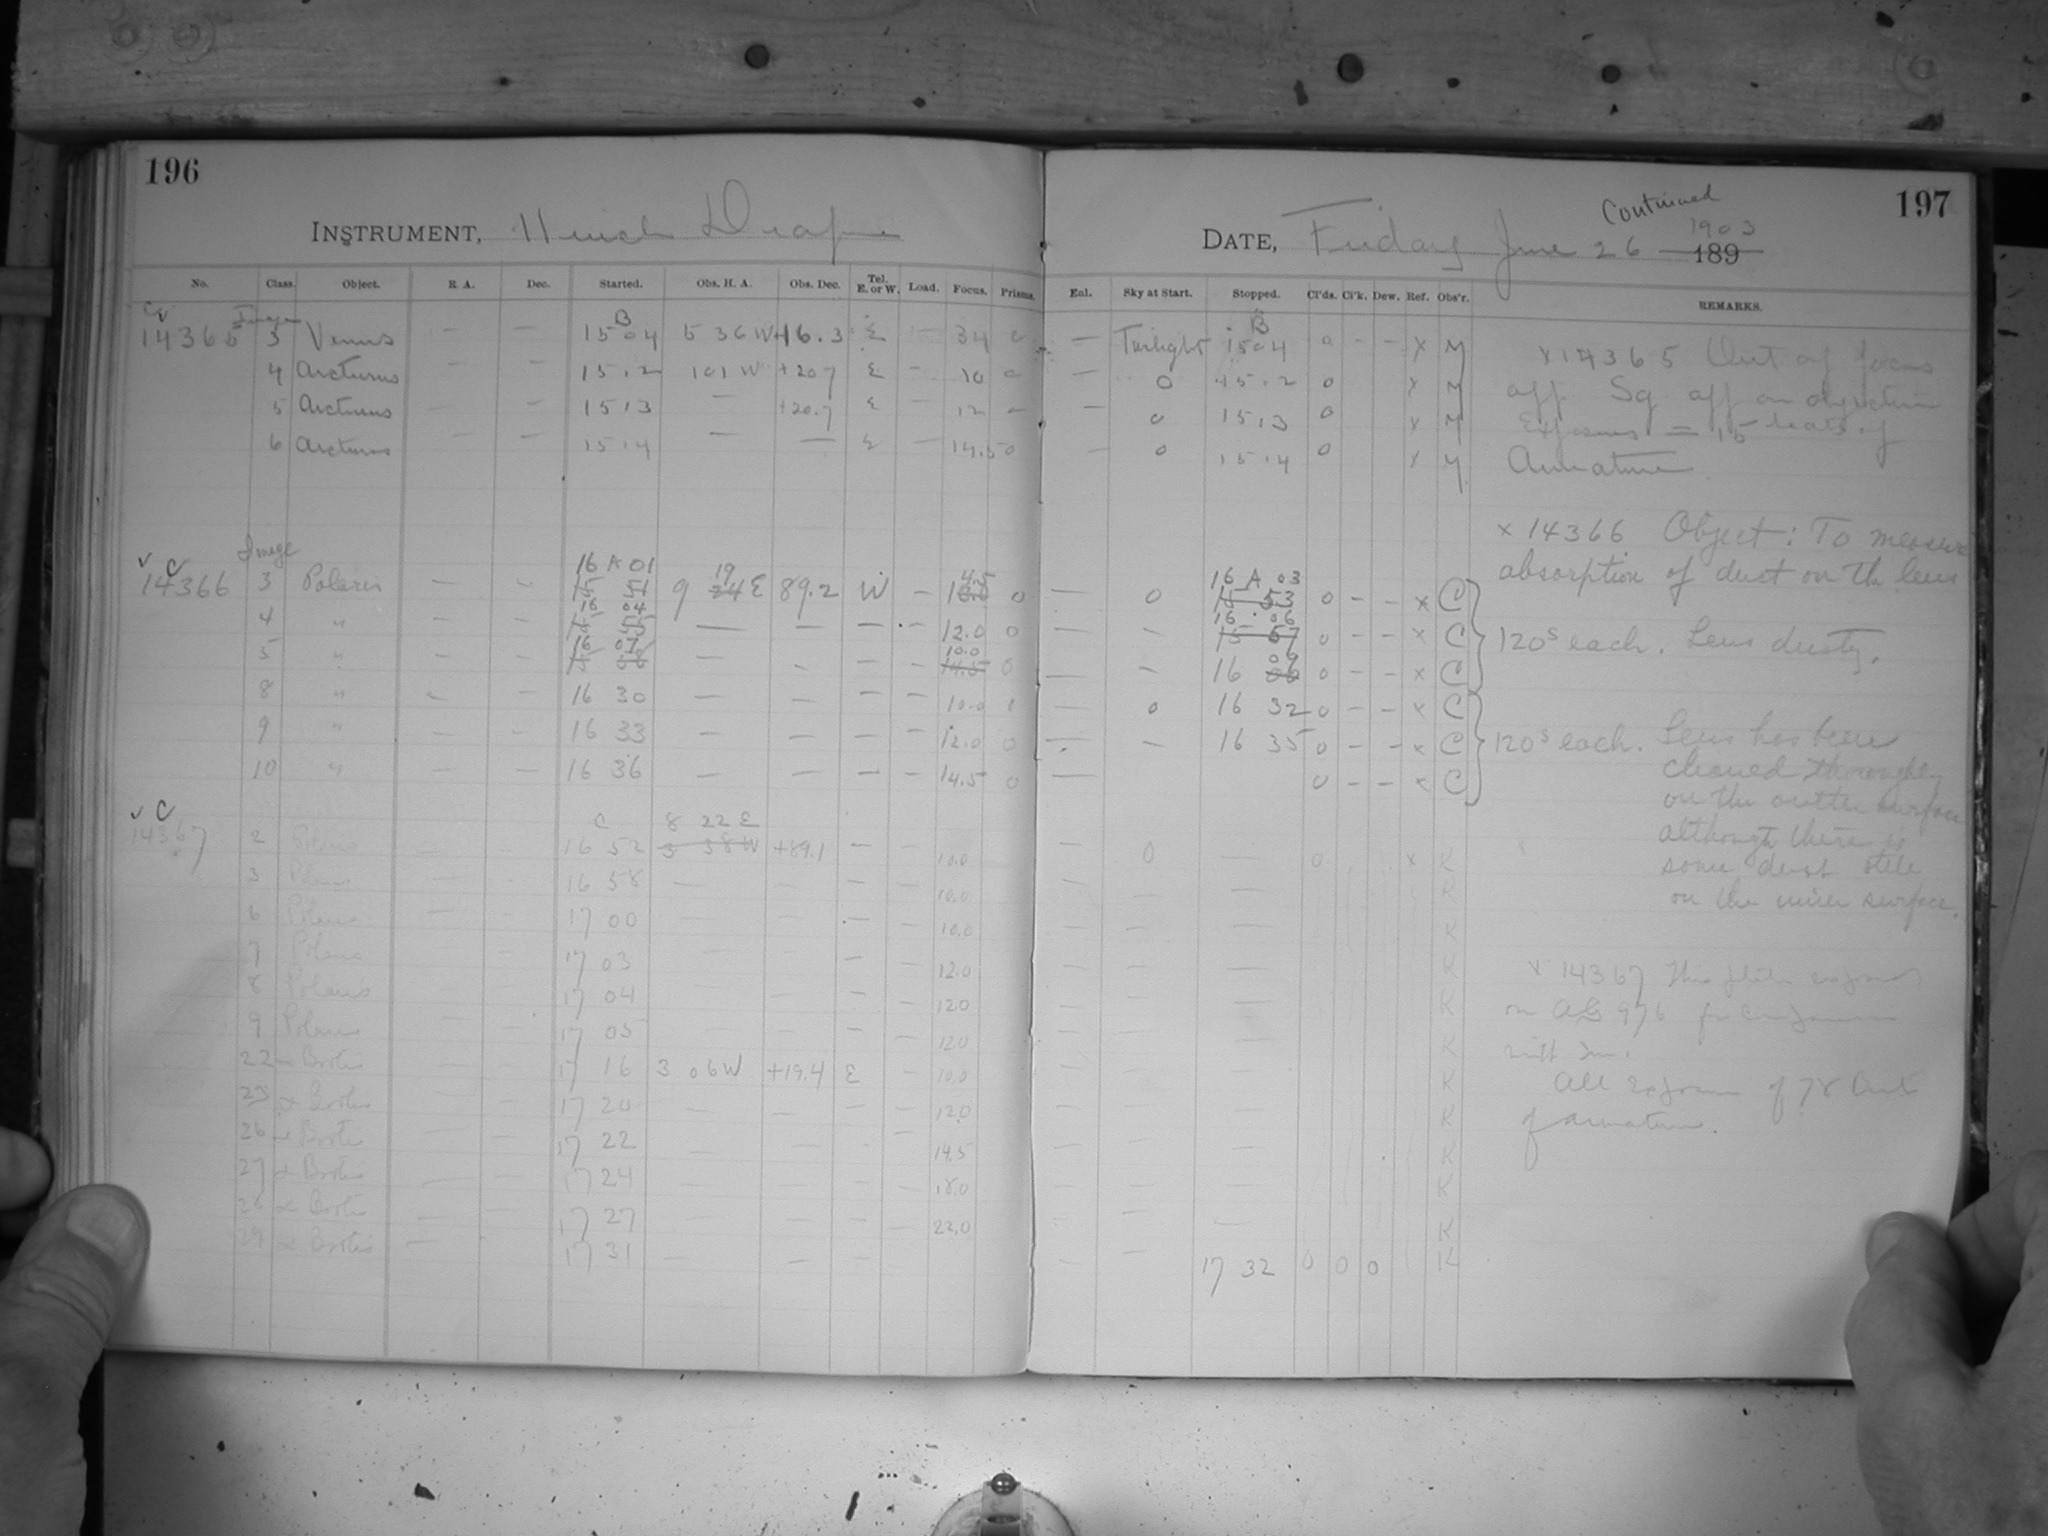 196
INSTRUMENT, 11 inch Draper
No. Class. Object. R. A. Dec. Started. Obs. H. A. Obs. Dec. Tel. E. or W. Load. Focus. Prisms.
Image B
14365 3 Venus — — 15 04 5 36 W +16.3 E — 34 0
4 Arcturus — — 15 12 1 01 W +20.7 E — 10 0
5 Arcturus — — 15 13 — +20.7 E — 12 —
6 Arcturus — — 15 14 — — E — 14.5 0
v C Image 16 A 01 19 4.5
14366 3 Polaris — — 15 51 9 24 E 89.2 W — 0
16 04
4 " 15 55 — — — — 12.0 0
16 07 10.0
5 " — — — — 14.5 0
8 " — — 16 30 — — — — 10.0 1
9 " — — 16 33 — — — — 12.0 0
10 " — — 16 36 — — — — 14.5 0
v C C 8 22 E
14367 2 Polaris — — 16 52 3 38 W +89.1 — — 10.0
3 Polaris — — 16 58 — — — — 10.0
6 Polaris — — 17 00 — — — — 10.0
7 Polaris — — 17 03 — — — — 12.0
8 Polaris — — 17 04 — — — — 12.0
9 Polaris — — 17 05 — — — — 12.0
22 α Bootis — — 17 16 3 06 W +19.4 E — 10.0
23 α Bootis — — 17 20 — — — — 12.0
26 α Bootis — — 17 22 — — — — 14.5
27 α Bootis — — 17 24 — — — — 18.0
28 α Bootis — — 17 27 — — — — 22.0
29 α Bootis — 17 31 — — — —
197
Continued
DATE, Friday June 26 1903 189
Enl. Sky at Start. Stopped. Cl'ds. Cl'k. Dew. Ref. Obs'r. REMARKS.
B
— Twilight 15 04 0 - - x M
— 0 15 12 0 x M
— 0 15 13 0 x M
— 0 15 14 0 x M
x 14365 Out of focus
off. Sq off on objective
Exposures = 15 beats of
Armature
x 14366 Object: To measure
absorption of dust on the lens
16 A 03
— 0 15 53 0 - - x C
16 06
— — 15 57 0 - - x C
09
— — 16 0 - - x C
120s each. Lens dusty.
— 0 16 32 0 - - x C
— — 16 35 0 - - x C
— 0 - - x C
120s each. Lens has been
cleaned thoroughly
on the outer surface
although there is
some dust still
on the inner surface.
— 0 — 0 x K
— — — K
— — — K
— — — K
— — — K
— — — K
— — — K
— — — K
— — — K
— — — K
— — — K
— — 17 32 0 0 0 K
x 14367 This plate exposed
on AG 976 for comparison
with
All exposures of 78 beats
of armature.